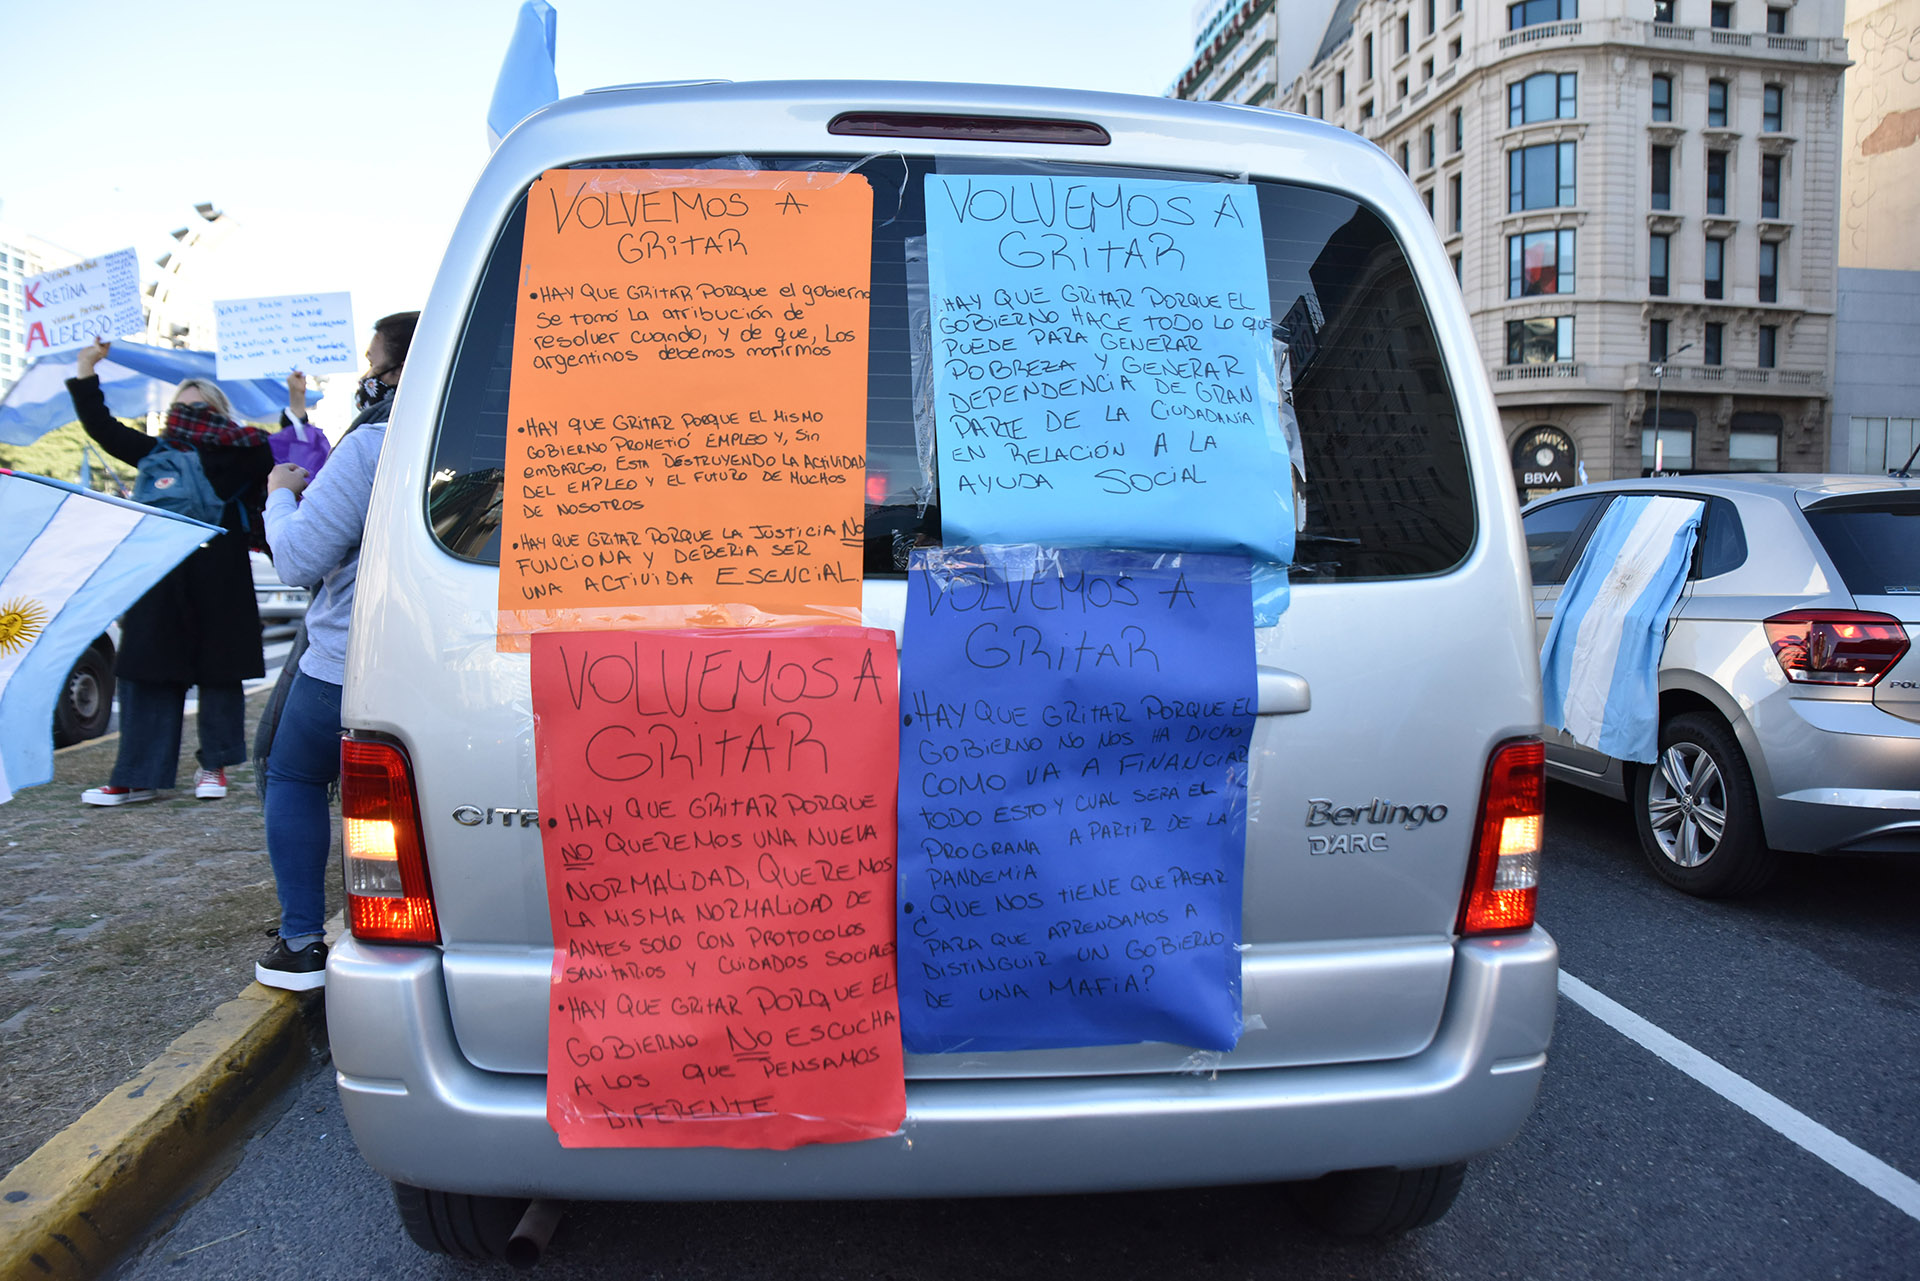 VOLVEMOS A
GRITAR
• HAY QUE GRITAR PORQUE el gobierno
se tomó la atribución de
resolver cuando, y de que, Los
argentinos debemos morirnos
• HAY QUE GRITAR PORQUE EL MISMO
GOBIERNO PROMETIÓ EMPLEO Y, Sin
embargo, ESTA DESTRUYENDO LA ACTIVIDAD
DEL EMPLEO Y EL FUTURO DE MUCHOS
DE NOSOTROS
• HAY QUE GRITAR PORQUE LA JUSTICIA NO
FUNCIONA Y DEBERIA SER
UNA ACTIVIDA ESENCIAL.
VOLVEMOS A
GRITAR
. HAY QUE GRITAR PORQUE EL
GOBIERNO HACE TODO LO QUE
PUEDE PARA GENERAR
POBREZA Y GENERAR
DEPENDENCIA DE GRAN
PARTE DE LA CIUDADANIA
EN RELACIÓN A LA
AYUDA SOCIAL
VOLVEMOS A
GRITAR
• HAY QUE GRITAR PORQUE
NO QUEREMOS UNA NUEVA
NORMALIDAD, QUEREMOS
LA MISMA NORMALIDAD DE
ANTES SOLO CON PROTOCOLOS
SANITARIOS Y CUIDADOS SOCIALES
• HAY QUE GRITAR PORQUE EL
GOBIERNO NO ESCUCHA
A LOS QUE PENSAMOS
DIFERENTE.
VOLVEMOS A
GRITAR
• HAY QUE GRITAR PORQUE EL
GOBIERNO NO NOS HA DICHO
COMO VA A FINANCIAR
TODO ESTO Y CUAL SERÁ EL
PROGRAMA A PARTIR DE LA
PANDEMIA
• ¿QUE NOS TIENE QUE PASAR
PARA QUE APRENDAMOS A
DISTINGUIR UN GOBIERNO
DE UNA MAFIA?
CITR
Berlingo
D'ARC
BBVA
POL
K
KRETINA
A
ALBERSO
NADIE